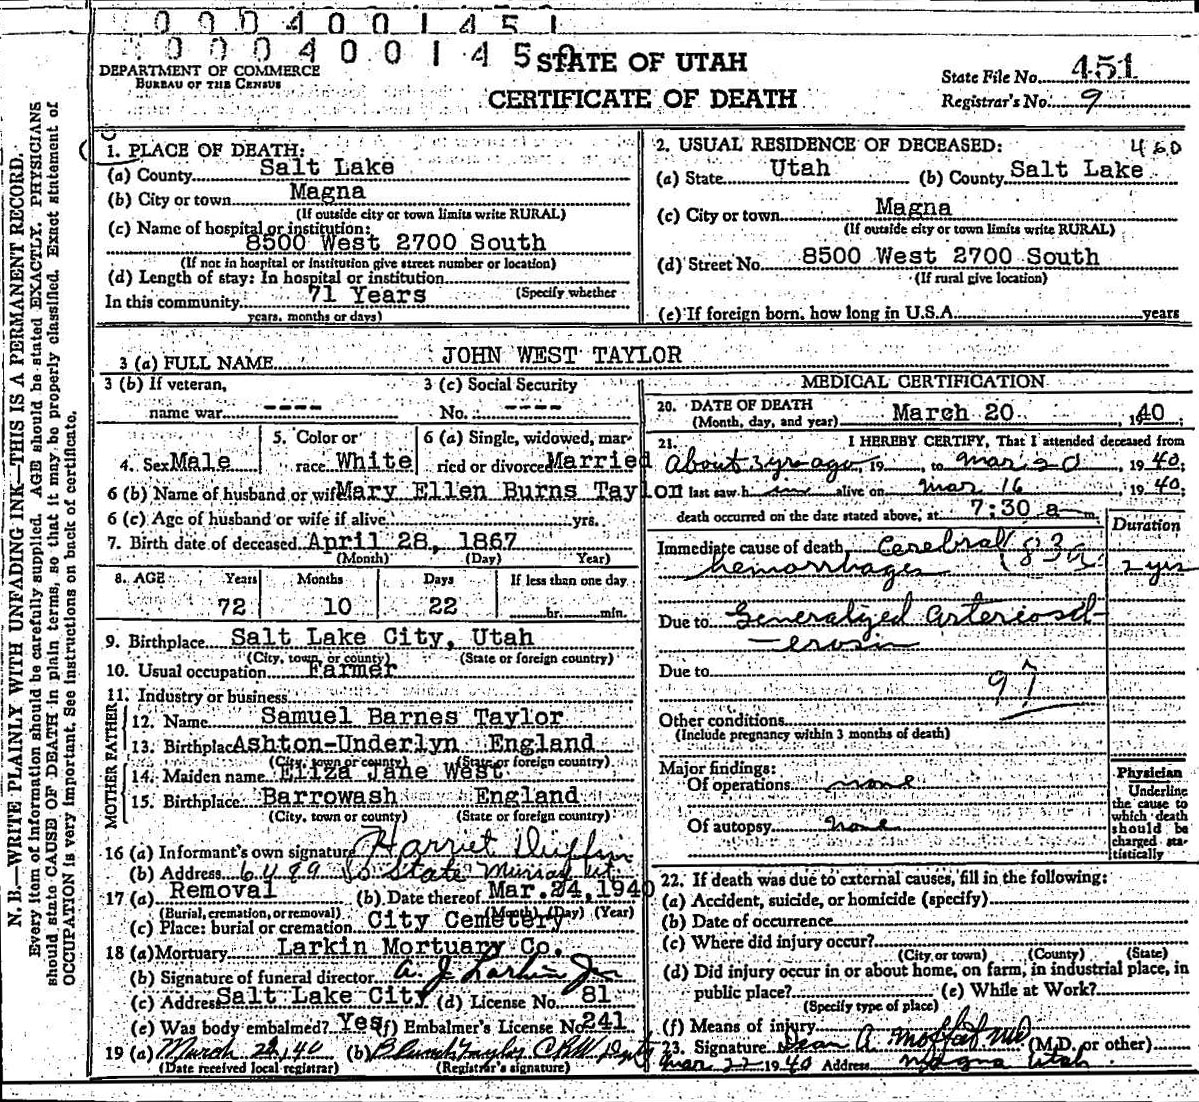 0004001451
000400145
STATE OF UTAH
CERTIFICATE OF DEATH
DEPARTMENT OF COMMERCE
BUREAU OF THE CENSUS
State File No. 451
Registrar's No. 9
N. B.—WRITE PLAINLY WITH UNFADING INK—THIS IS A PERMANENT RECORD.
Every item of information should be carefully supplied. AGE should be stated EXACTLY. PHYSICIANS
should state CAUSE OF DEATH in plain terms, so that it may be properly classified. Exact statement of
OCCUPATION is very important. See instructions on back of certificate.
1. PLACE OF DEATH:
(a) County Salt Lake
(b) City or town Magna
(If outside city or town limits write RURAL)
(c) Name of hospital or institution:
8500 West 2700 South
(If not in hospital or institution give street number or location)
(d) Length of stay: In hospital or institution
(Specify whether
In this community 71 Years
years, months or days)
2. USUAL RESIDENCE OF DECEASED: 460
(a) State Utah (b) County Salt Lake
(c) City or town Magna
(If outside city or town limits write RURAL)
(d) Street No. 8500 West 2700 South
(If rural give location)
(e) If foreign born, how long in U.S.A. years
3 (a) FULL NAME JOHN WEST TAYLOR
3 (b) If veteran,
name war ----
3 (c) Social Security
No. ----
4. Sex Male
5. Color or
race White
6 (a) Single, widowed, mar-
ried or divorced Married
6 (b) Name of husband or wife Mary Ellen Burns Taylor
6 (c) Age of husband or wife if alive yrs.
7. Birth date of deceased April 28, 1867
(Month) (Day) Year)
8. AGE Years Months Days If less than one day
72 10 22 hr. min.
9. Birthplace Salt Lake City, Utah
(City, town, or county) (State or foreign country)
10. Usual occupation Farmer
11. Industry or business
FATHER
12. Name Samuel Barnes Taylor
13. Birthplace Ashton-Underlyn England
(City, town or county) (State or foreign country)
MOTHER
14. Maiden name Eliza Jane West
15. Birthplace Barrowash England
(City, town or county) (State or foreign country)
16 (a) Informant's own signature Harriet
(b) Address So State Murray Ut.
17 (a) Removal (b) Date thereof Mar. 24, 1940
(Burial, cremation, or removal) (Month) (Day) (Year)
(c) Place: burial or cremation City Cemetery
18 (a) Mortuary Larkin Mortuary Co.
(b) Signature of funeral director A. J. Larkin Jr
(c) Address Salt Lake City (d) License No. 81
(e) Was body embalmed? Yes (f) Embalmer's License No. 241
19 (a) March 22, 40 (b) Taylor
(Date received local registrar) (Registrar's signature)
MEDICAL CERTIFICATION
20. DATE OF DEATH March 20, 1940;
(Month, day, and year)
21. I HEREBY CERTIFY, That I attended deceased from
About 3 yrs ago, 19 , to Mar 20, 1940;
I last saw him alive on Mar 16, 1940;
death occurred on the date stated above, at 7:30 a m.
Duration
Immediate cause of death Cerebral (83a)
hemorrhages 2 yrs
Due to Generalized Arterioscl-
erosis
Due to
97
Other conditions
(Include pregnancy within 3 months of death)
Major findings:
Of operations none
Of autopsy none
Physician
Underline
the cause to
which death
should be
charged sta-
tistically
22. If death was due to external causes, fill in the following:
(a) Accident, suicide, or homicide (specify)
(b) Date of occurrence
(c) Where did injury occur?
(City or town) (County) (State)
(d) Did injury occur in or about home, on farm, in industrial place, in
public place? (e) While at Work?
(Specify type of place)
(f) Means of injury
23. Signature Dean A. Moffat MD (M.D. or other)
Mar 22 1940 Address Magna Utah